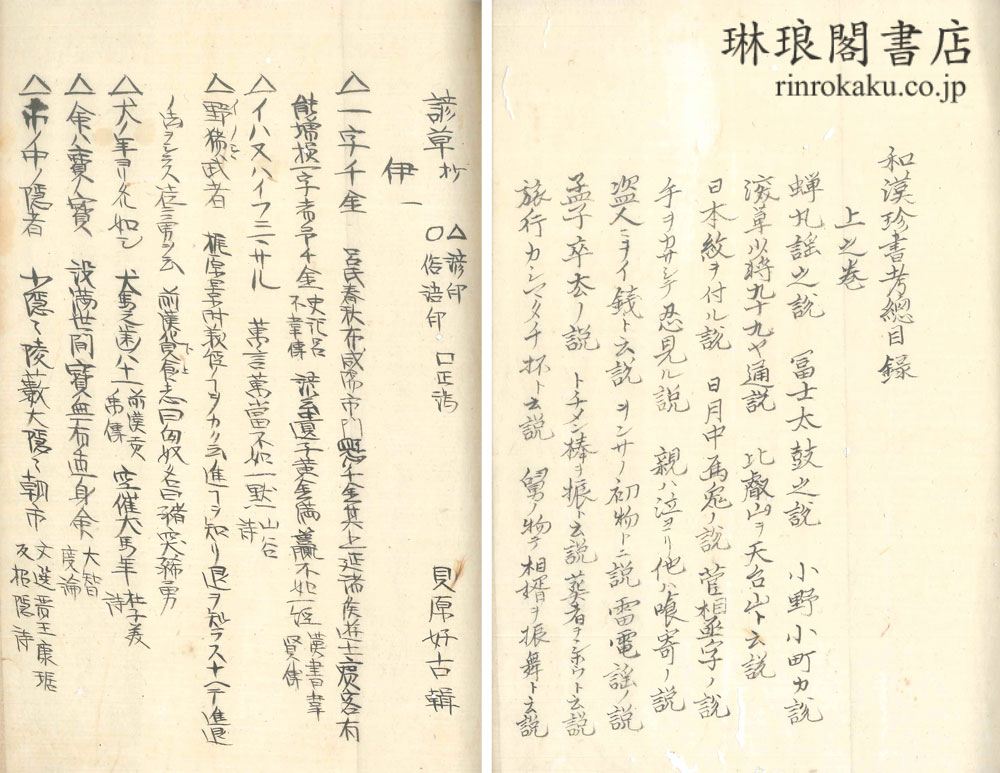 琳琅閣書店
rinrokaku.co.jp
和漢珍書考總目録
上之巻
蝉丸謡之説　冨士太鼓之説　小野小町カ説
深草少将九十九夜通説　比叡山ヲ天台山ト云説
日本紋ヲ付ル説　日月中烏兎ノ説　菅相丞字ノ説
手ヲカサシテ忍見ル説　親ハ泣ヨリ他ハ喰寄ノ説
盗人ニヲイ銭ト云説　初物ト云説　雷電謡ノ説
孟子卒去ノ説　トチメン棒ヲ振ト云説　葬者ヲ　ト云説
旅行カシマタチ杯ト云説　舅ノ物テ相婿ヲ振舞ト云説
諺草抄　△諺印　〇俗語印　口正誤　貝原好古輯
伊一
△一字千金　呂氏春秋布咸陽市門懸千金其上延諸侯遊士賓客有
能増損一字者予千金　史記呂不韋傳　遺子黄金満籯不如一経　漢書韋賢傳
△イハヌハイフニマサル　萬言萬當不如一黙　山谷詩
△野猪武者　梶原景時義経　進　ヲ知リ退ヲ知ラス　進
勇ヲ云　前漢食貨志曰匈奴名曰猪突豨勇
△犬ノ年ヨリ久如シ　犬馬之歯八十一　前漢貢禹傳　空催犬馬年　杜子美詩
△命ハ寶ノ寶　設満世間寶無有直身命　大智度論
△市ノ中ノ隠者　小隠ハ陵藪大隠ハ朝市　文選晋王康琚反招隠詩